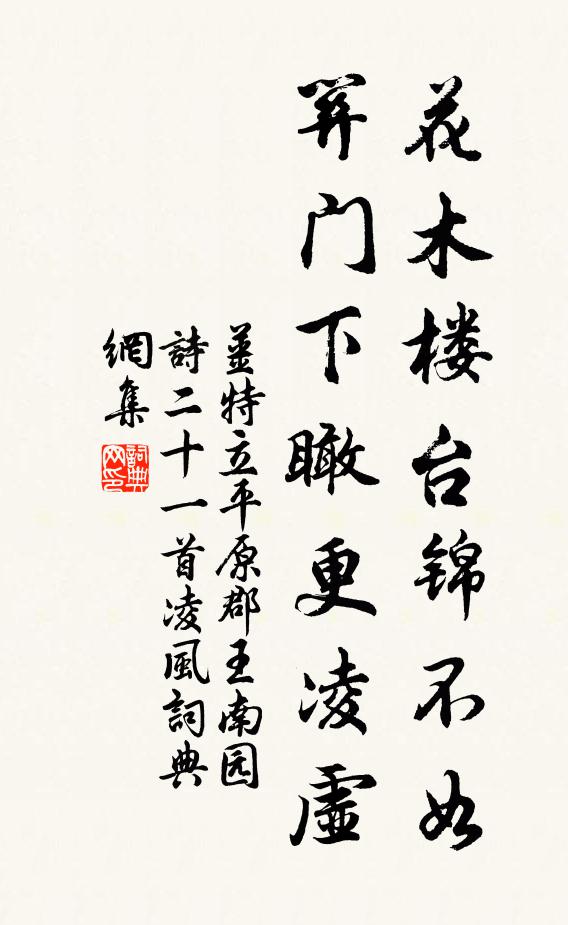 花木楼台锦不如
笄门下瞰更凌虚
姜特立平原郡王南园
詩二十一首凌風詞典
網集
詞典网印